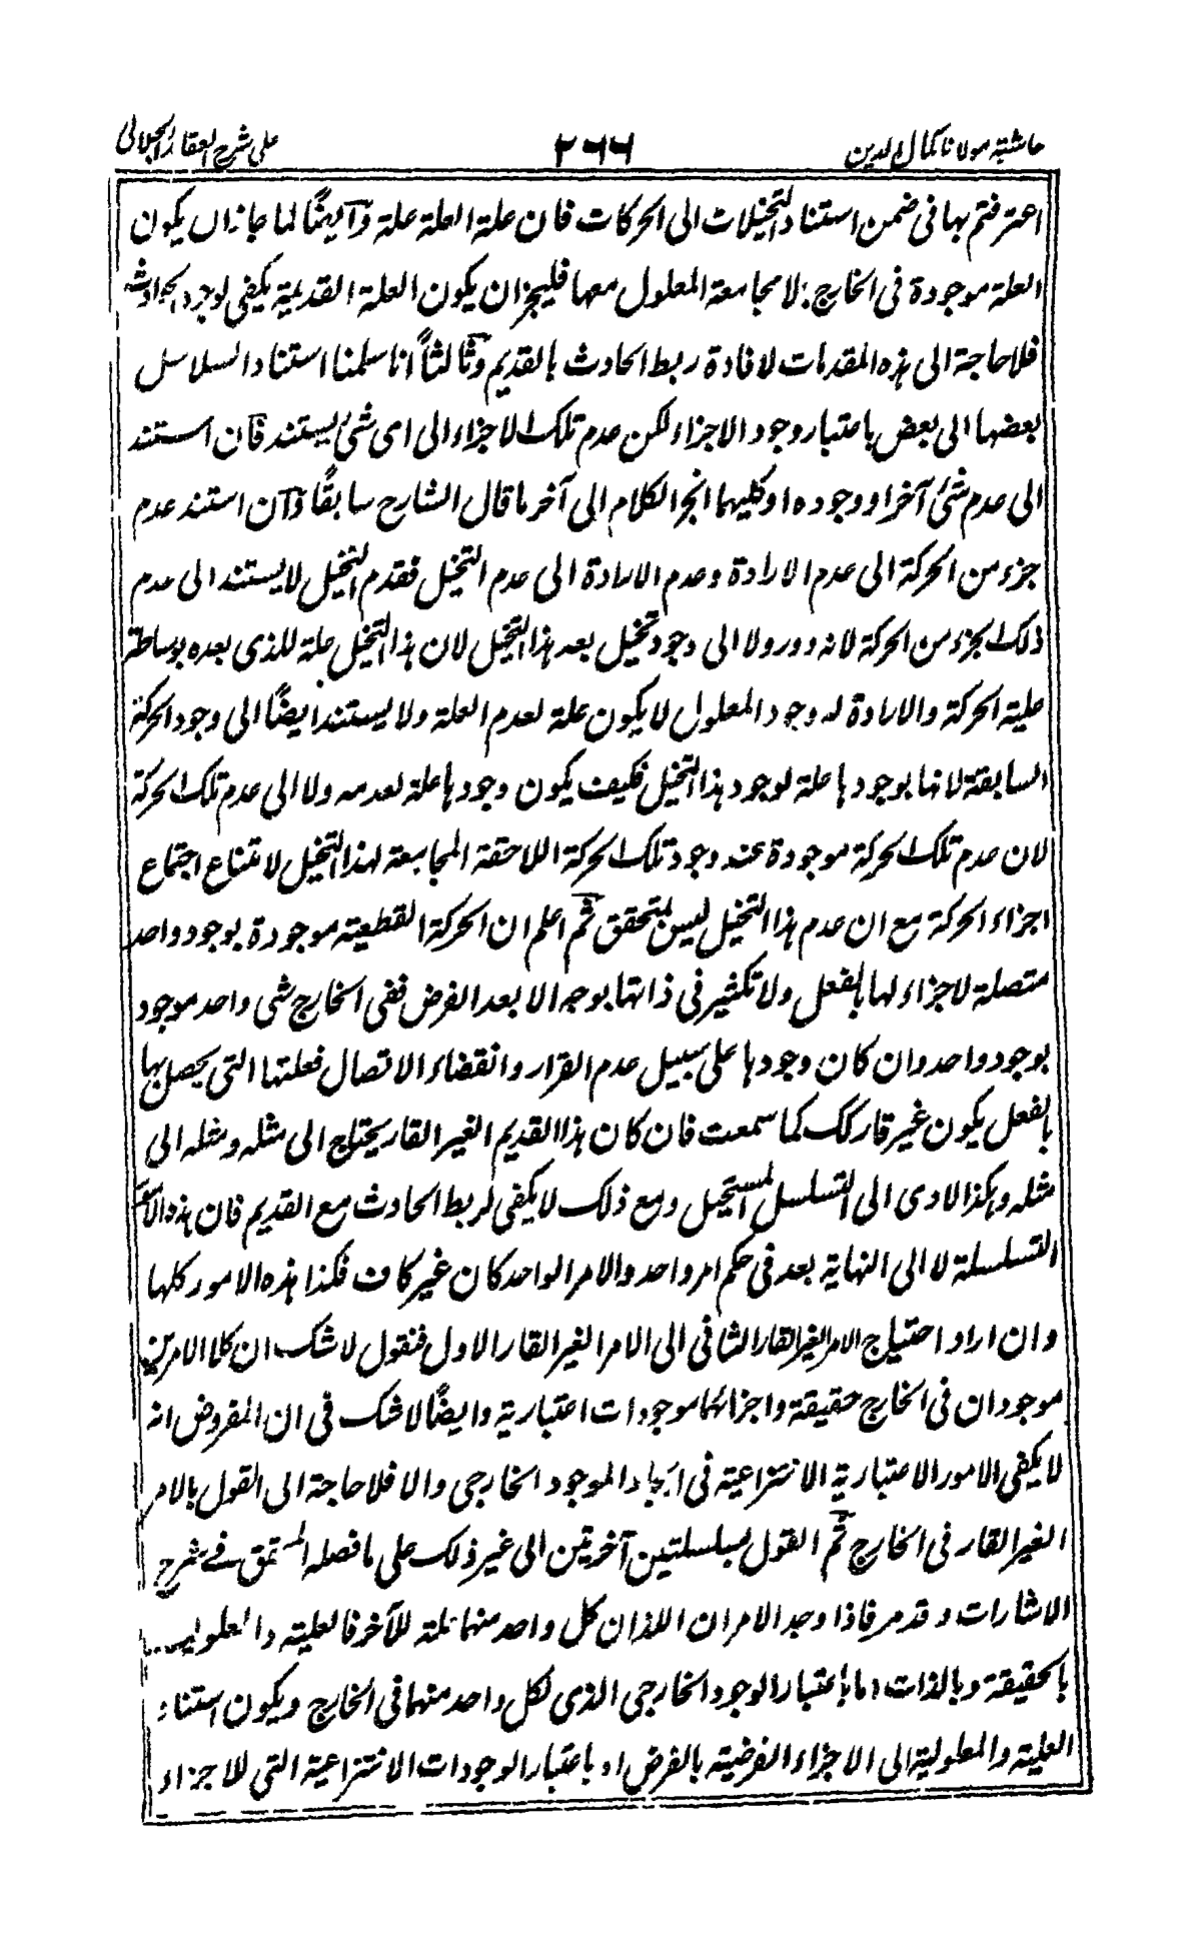 حاشية مولانا كمال الدين ٢٦٦ على شرح العقائد الجلالى
اعترفتم بها فى ضمن استناد التخيلات الى الحركات فان علة العلة علة وآيضًا لما جاز ان يكون
العلة موجودة فى الخارج بلا مجامعة المعلول معها فليجز ان يكون العلة القديمة يكفى لوجود الحوادث
فلا حاجة الى هذه المقدمات لافادة ربط الحادث بالقديم وثالثاً انا سلمنا استناد السلاسل
بعضها الى بعض باعتبار وجود الاجزاء لكن عدم تلك الاجزاء الى اى شئ يستند فآن استند
الى عدم شئ آخر او وجوده او كليهما انجر الكلام الى آخر ما قال الشارح سابقًا وآن استند عدم
جزء من الحركة الى عدم الارادة وعدم الارادة الى عدم التخيل فعدم التخيل لا يستند الى عدم
ذلك الجزء من الحركة لانه دور ولا الى وجود تخيل بعد هذا التخيل لان هذا التخيل علة للذى بعده بوساطة
علية الحركة والارادة له وجود المعلول لا يكون علة لعدم العلة ولا يستند ايضًا الى وجود الحركة
السابقة لانها بوجودها علة لوجود هذا التخيل فكيف يكون وجودها علة لعدمه ولا الى عدم تلك الحركة
لان عدم تلك الحركة موجودة عند وجود تلك الحركة اللاحقة المجامعة لهذا التخيل لامتناع اجتماع
اجزاء الحركة مع ان عدم هذا التخيل ليس بمتحقق ثم اعلم ان الحركة القطعية موجودة بوجود واحد
متصلة لا جزاء لها بالفعل ولا تكثير فى ذاتها بوجه الا بعد الفرض ففى الخارج شى واحد موجود
بوجود واحد وان كان وجودها على سبيل عدم القرار وانقضاء الاتصال فعلتها التى يحصل بها
بالفعل يكون غير قار كك كما سمعت فان كان هذا القديم الغير القار يحتاج الى مثله ومثله الى
مثله وهكذا لادى الى التسلسل المستحيل ومع ذلك لا يكفى لربط الحادث مع القديم فان هذه الامور
المتسلسلة لا الى النهاية بعد فى حكم امر واحد والامر الواحد كان غير كاف فكذا هذه الامور كلها
وان اراد احتياج الامر الغير القار الثانى الى الامر الغير القار الاول فنقول لا شك ان كلا الامرين
موجودان فى الخارج حقيقة واجزائهما موجودات اعتبارية وايضًا لا شك فى ان المفروض انه
لا يكفى الامور الاعتبارية الانتزاعية فى ايجاد الموجود الخارجى والا فلا حاجة الى القول بالامر
الغير القار فى الخارج ثم القول بسلسلتين آخرتين الى غير ذلك على ما فصله المحقق فى شرح
الاشارات وقد مر فاذا وجد الامران اللذان كل واحد منهما علة للآخر فالعلية والمعلولية
بالحقيقة وبالذات اما باعتبار الوجود الخارجى الذى لكل واحد منهما فى الخارج ويكون استناد
العلية والمعلولية الى الاجزاء الفرضية بالفرض او باعتبار الوجودات الانتزاعية التى للاجزاء